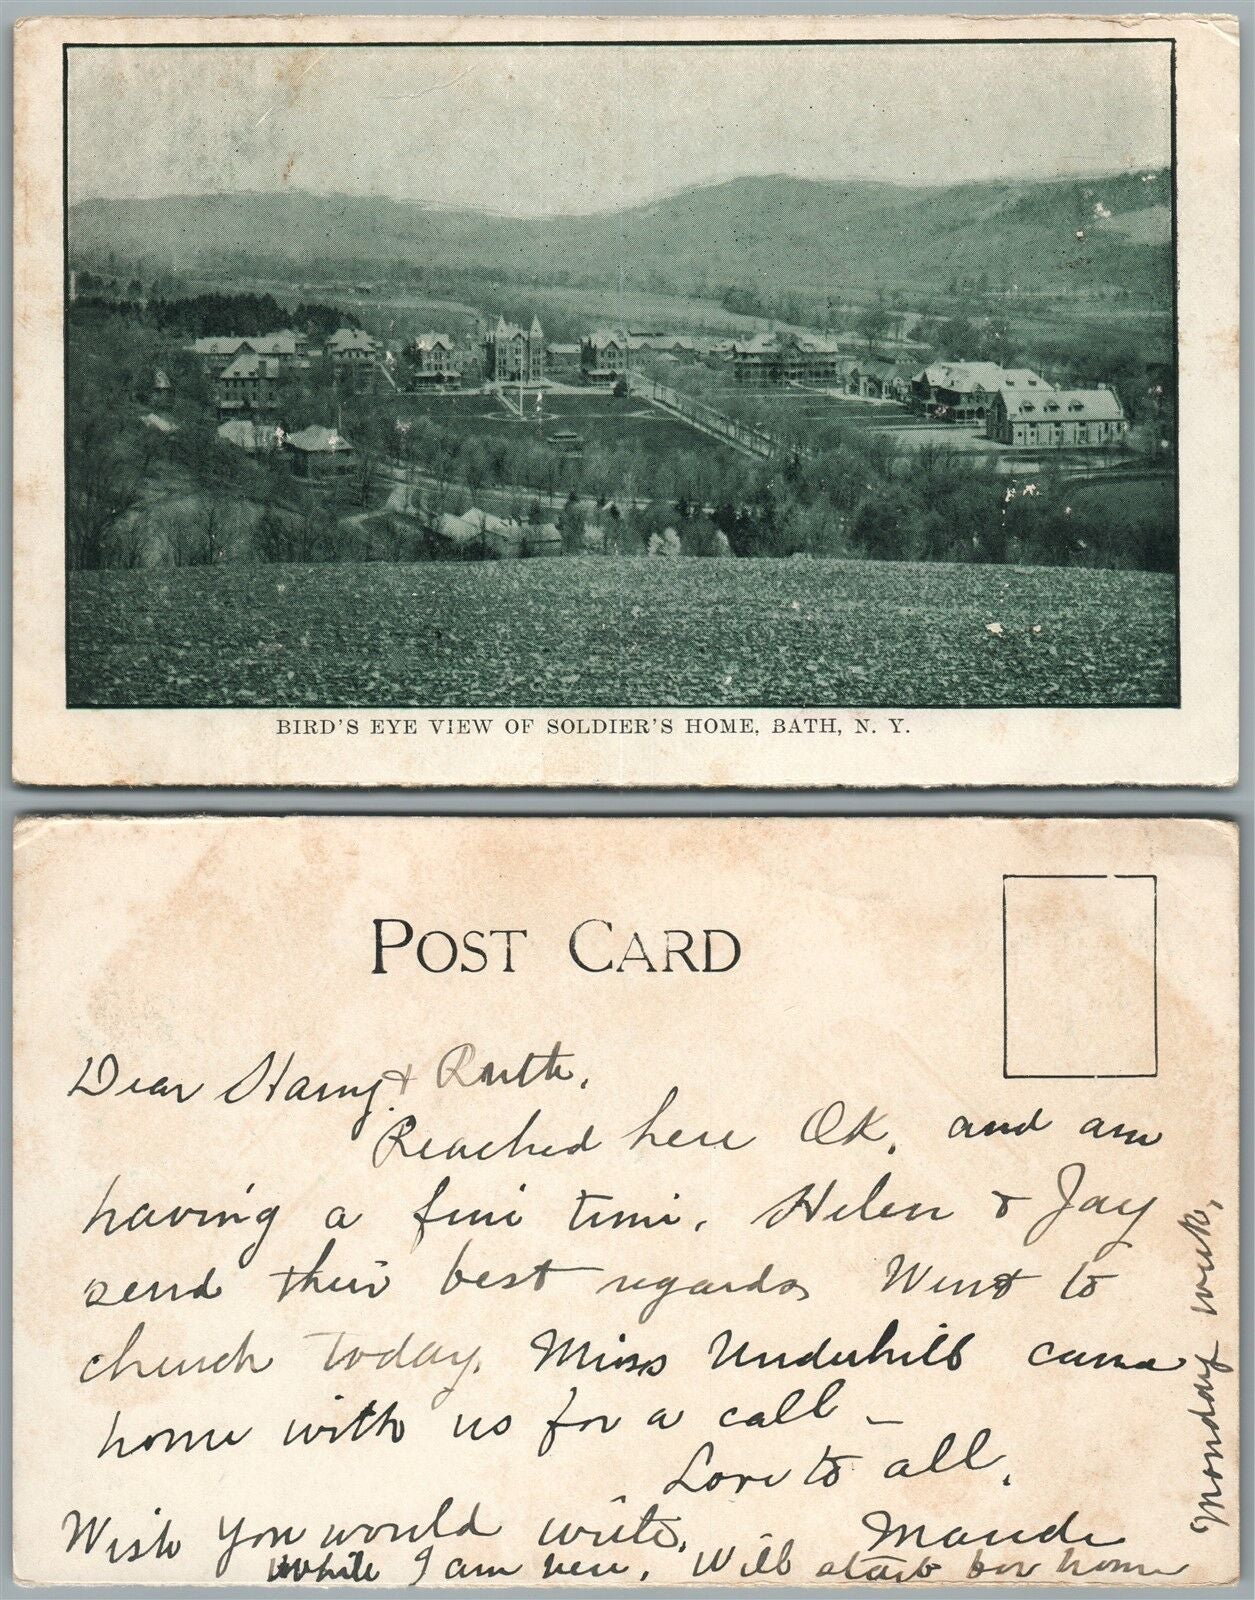 BIRD'S EYE VIEW OF SOLDIER'S HOME, BATH, N. Y.
POST CARD
Dear Harry & Ruth,
Reached here OK, and am
having a fine time. Helen & Jay
send their best regards, Went to
church today. Miss Underhill came
home with us for a call –
Love to all,
Wish you would write, Maude
While I am here. Will start for home
Monday week,